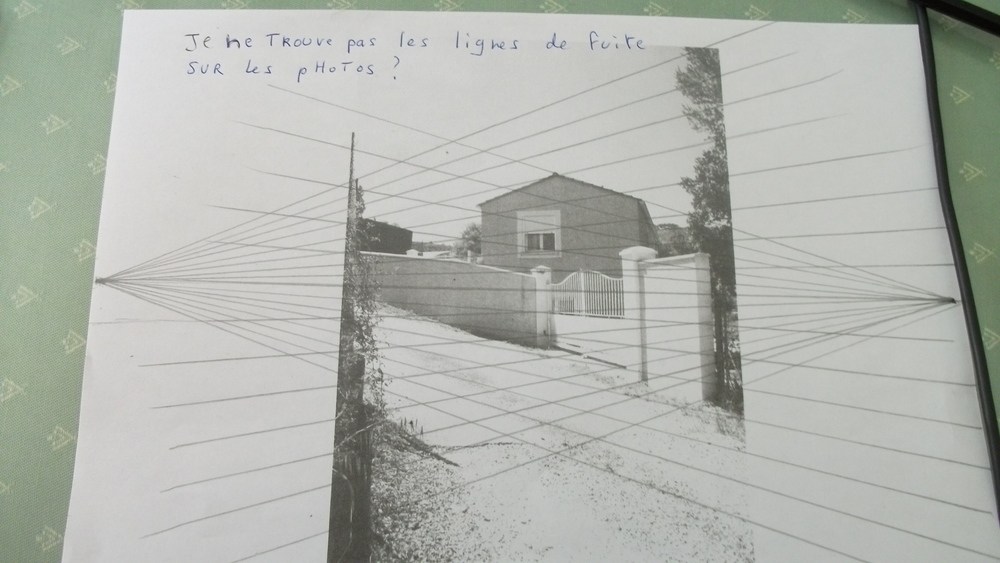 Je ne TROUVE pas les lignes de fuite
SUR les pHoTos ?